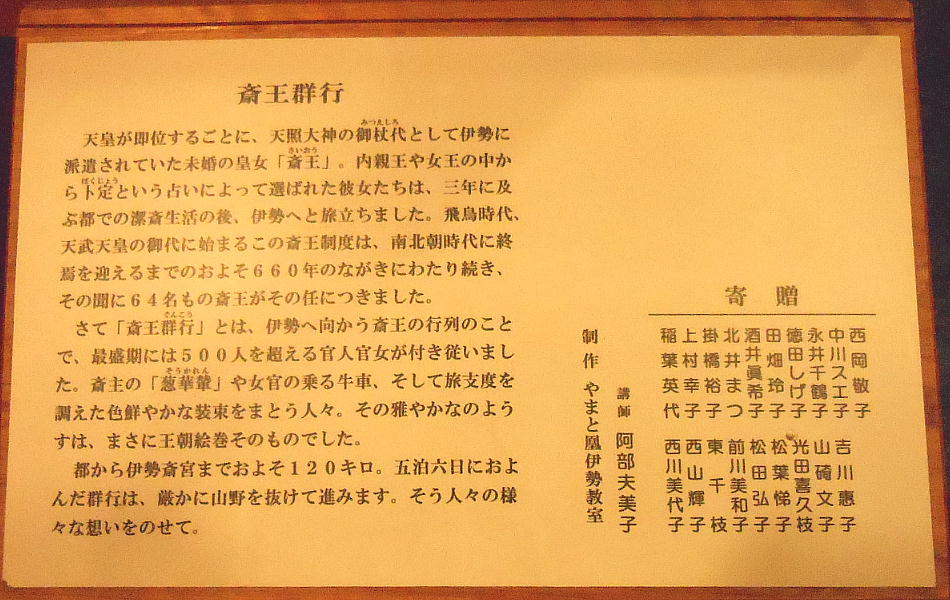 斎王群行
天皇が即位するごとに、天照大神の御杖代として伊勢に
みつえしろ
派遣されていた未婚の皇女「斎王」。内親王や女王の中か
さいおう
ら卜定という占いによって選ばれた彼女たちは、三年に及
ぼくじょう
ぶ都での潔斎生活の後、伊勢へと旅立ちました。飛鳥時代、
天武天皇の御代に始まるこの斎王制度は、南北朝時代に終
焉を迎えるまでのおよそ６６０年のながきにわたり続き、
その間に６４名もの斎王がその任につきました。
さて「斎王群行」とは、伊勢へ向かう斎王の行列のこと
ぐんこう
で、最盛期には５００人を超える官人官女が付き従いまし
た。斎主の「葱華輦」や女官の乗る牛車、そして旅支度を
そうかれん
調えた色鮮やかな装束をまとう人々。その雅やかなのよう
すは、まさに王朝絵巻そのものでした。
都から伊勢斎宮までおよそ１２０キロ。五泊六日におよ
んだ群行は、厳かに山野を抜けて進みます。そう人々の様
々な想いをのせて。
寄贈
西岡敬子 吉川惠子
中川スエ子 山碕文子
永井千鶴子 光田喜久枝
徳田しげ子 松葉悌子
田畑玲子 松田弘子
酒井眞希子 前川美和子
北井まつ 東千枝
掛橋裕子 西山輝子
上村幸子 西川美代子
稲葉英代
講師 阿部夫美子
制作 やまと凰伊勢教室